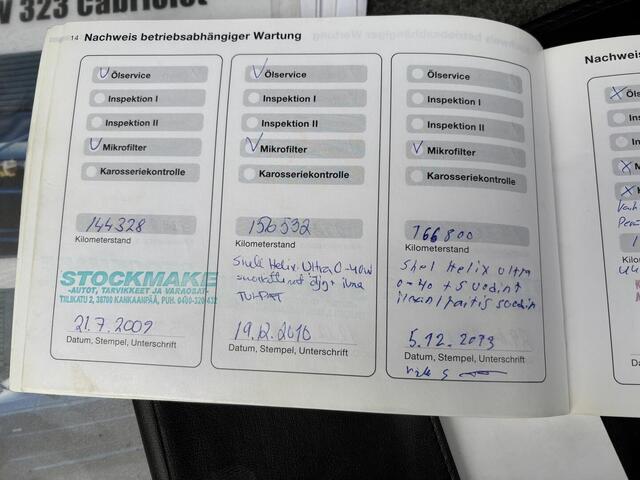 323 Cabriolet
14 Nachweis betriebsabhängiger Wartung
Ölservice
Inspektion I
Inspektion II
Mikrofilter
Karosseriekontrolle
144328
Kilometerstand
STOCKMAKE
-AUTOT, TARVIKKEET JA VARAOSAT-
TIILIKATU 2, 38700 KANKAANPÄÄ, PUH. 0400-320 432
21.7.2009
Datum, Stempel, Unterschrift
Ölservice
Inspektion I
Inspektion II
Mikrofilter
Karosseriekontrolle
156532
Kilometerstand
Helix Ultra 0-40w
öljyt
19.12.2010
Datum, Stempel, Unterschrift
Ölservice
Inspektion I
Inspektion II
Mikrofilter
Karosseriekontrolle
166800
Kilometerstand
Shel Helix ultra
0-40 + suodint
suodin
5.12.2013
Datum, Stempel, Unterschrift
Nachweis
Öls
Ins
Ins
Kilo
Datu